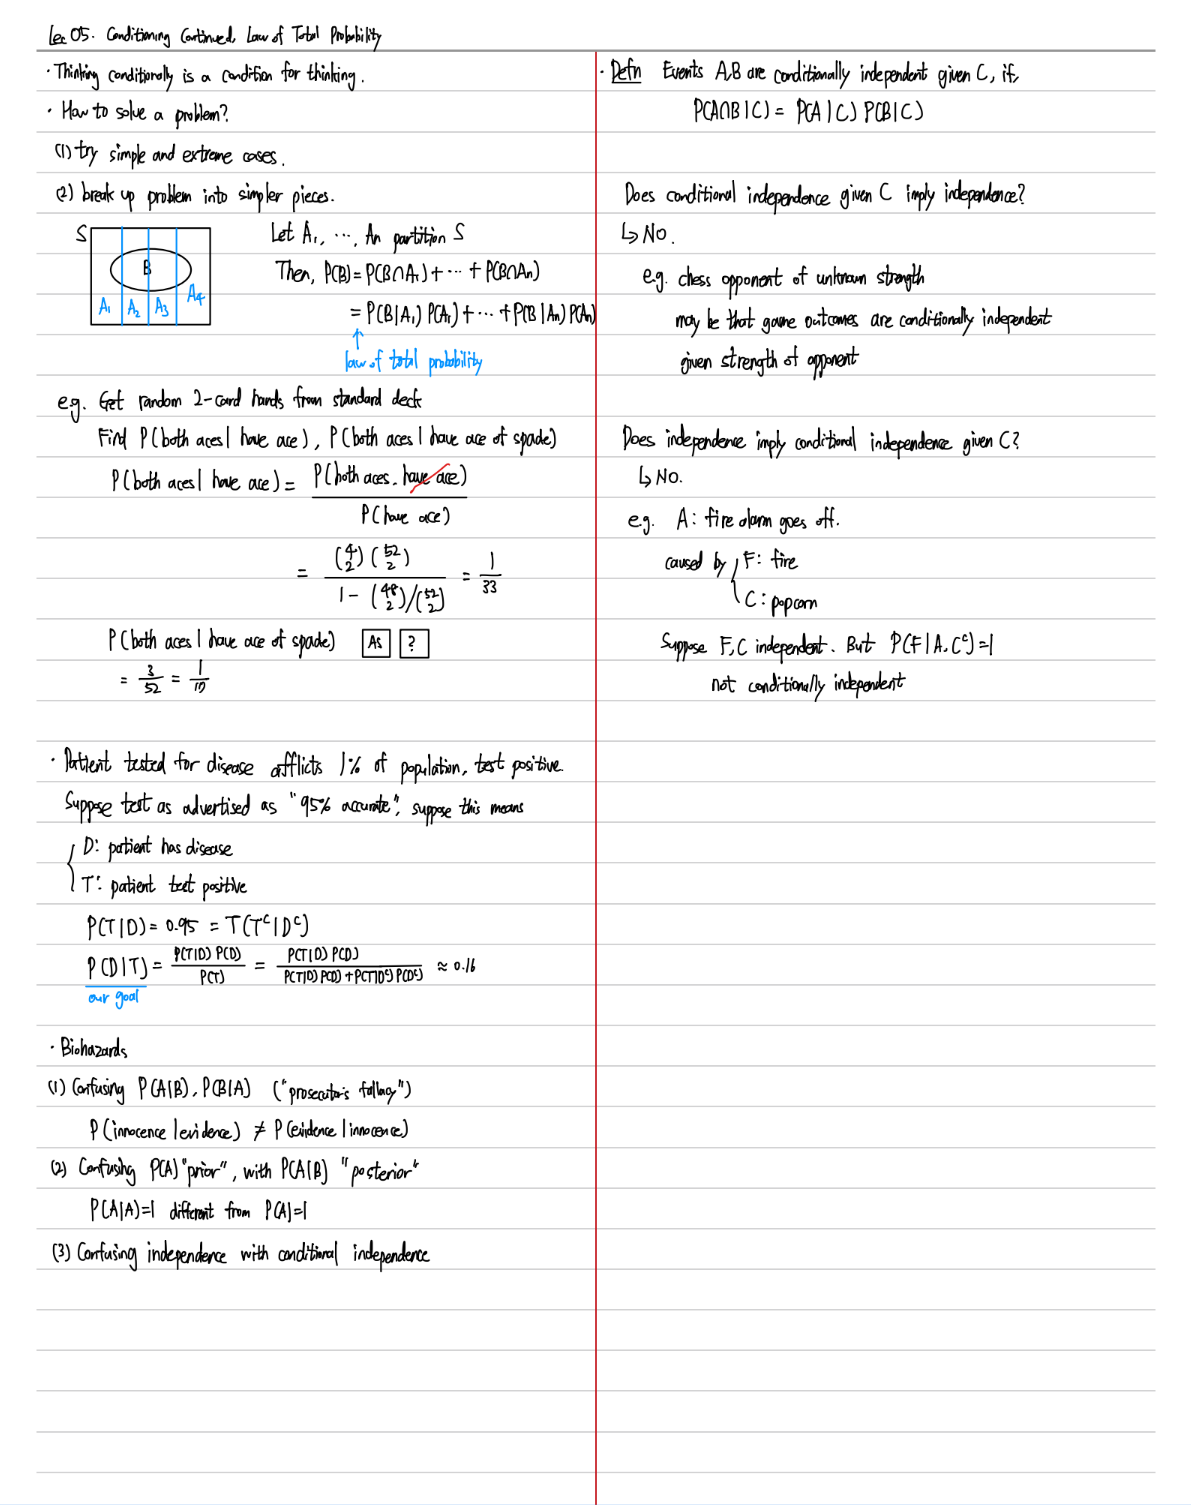 Lec 05. Conditioning Continued, Law of Total Probability
· Thinking conditionally is a condition for thinking.
· How to solve a problem?
(1) try simple and extreme cases.
(2) break up problem into simpler pieces.
S
B
A₁ A₂ A₃ A₄
Let A₁, ⋯, An partition S
Then, P(B) = P(B∩A₁) + ⋯ + P(B∩An)
= P(B|A₁) P(A₁) + ⋯ + P(B|An) P(An)
↑
law of total probability
e.g. Get random 2-card hands from standard deck
Find P(both aces | have ace), P(both aces | have ace of spade)
P(both aces | have ace) = P(both aces, have ace) / P(have ace)
= (4 2) (52 2) / 1 - (48 2)/(52 2) = 1/33
P(both aces | have ace of spade) As ?
= 3/52 = 1/17
· Patient tested for disease afflicts 1% of population, test positive.
Suppose test as advertised as "95% accurate", suppose this means
D: patient has disease
T: patient test positive
P(T|D) = 0.95 = T(Tᶜ|Dᶜ)
P(D|T) = P(T|D) P(D) / P(T) = P(T|D) P(D) / P(T|D) P(D) + P(T|Dᶜ) P(Dᶜ) ≈ 0.16
our goal
· Biohazards
(1) Confusing P(A|B), P(B|A) ("prosecutor's fallacy")
P(innocence | evidence) ≠ P(evidence | innocence)
(2) Confusing P(A) "prior", with P(A|B) "posterior"
P(A|A)=1 different from P(A)=1
(3) Confusing independence with conditional independence
· Defn Events A,B are conditionally independent given C, if,
P(A∩B|C) = P(A|C) P(B|C)
Does conditional independence given C imply independence?
↳ No.
e.g. chess opponent of unknown strength
may be that game outcomes are conditionally independent
given strength of opponent
Does independence imply conditional independence given C?
↳ No.
e.g. A: fire alarm goes off.
caused by F: fire
C: popcorn
Suppose F,C independent. But P(F|A,Cᶜ)=1
not conditionally independent